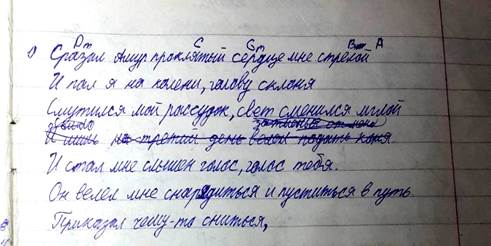 Dm C Gm Bm A
1) Сразал Амур проклятый сердце мне стрелой
И пал я на колени, голову склоня
Смутился мой рассудок, свет сменился мглой
И лишь на третий день велел подать коня
И стал мне слышен голос, голос тебя.
Он велел мне снарядиться и пуститься в путь.
Приказал чему-то сниться,